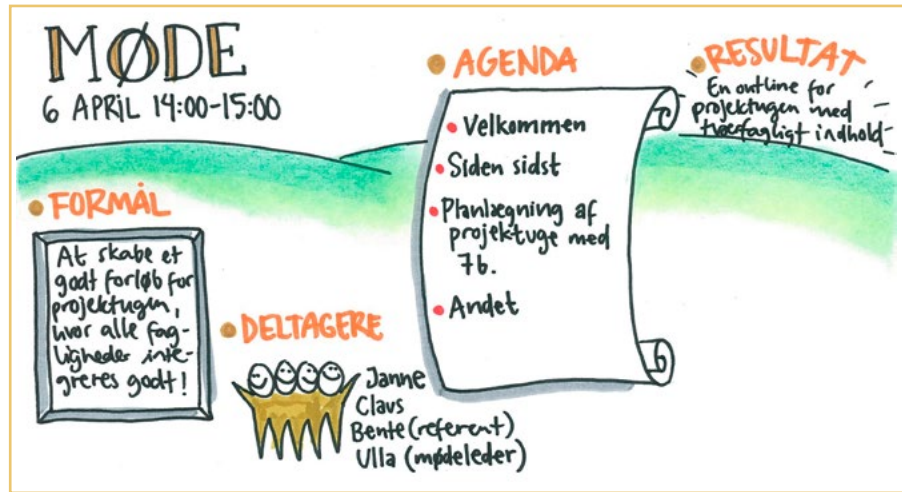 MØDE
6 APRIL 14:00-15:00
FORMÅL
At skabe et
godt forløb for
projektugen,
hvor alle fag-
ligheder inte-
greres godt!
DELTAGERE
Janne
Claus
Bente (referent)
Ulla (mødeleder)
AGENDA
Velkommen
Siden sidst
Planlægning af
projektuge med
7b.
Andet
RESULTAT
En outline for
projektugen med
tværfagligt indhold